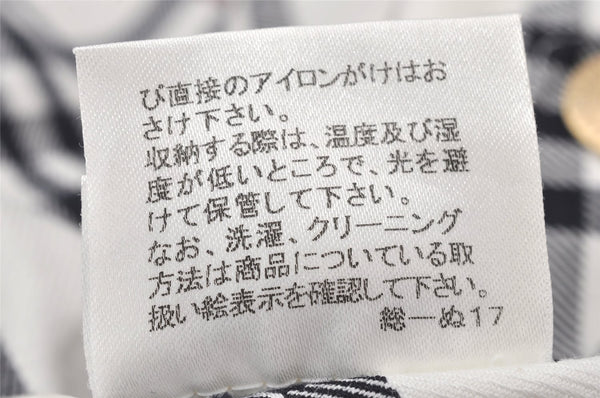 び直接のアイロンがけはお
さけ下さい。
収納する際は、温度及び湿
度が低いところで、光を避
けて保管して下さい。
なお、洗濯、クリーニング
方法は商品についている取
扱い絵表示を確認して下さい。
総一ぬ17